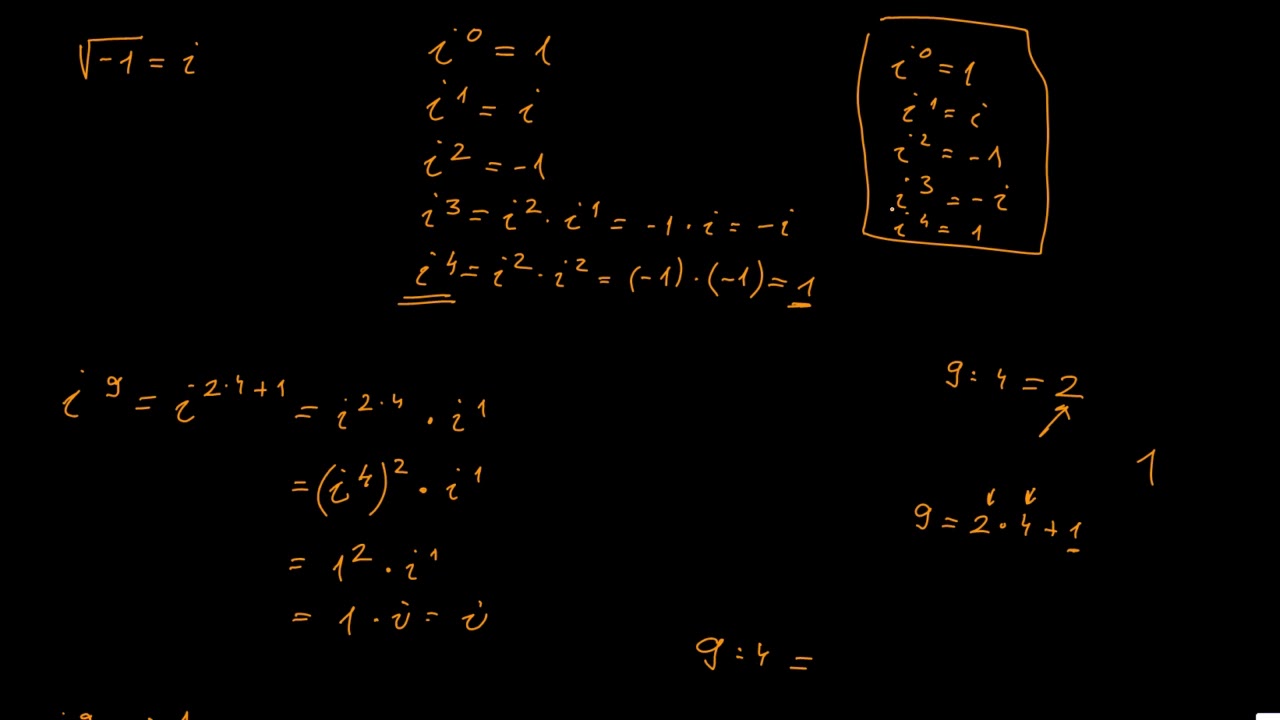 √-1 = i
i^0 = 1
i^1 = i
i^2 = -1
i^3 = i^2 · i^1 = -1 · i = -i
i^4 = i^2 · i^2 = (-1) · (-1) = 1
i^0 = 1
i^1 = i
i^2 = -1
i^3 = -i
i^4 = 1
i^9 = i^{2·4+1} = i^{2·4} · i^1
= (i^4)^2 · i^1
= 1^2 · i^1
= 1 · i = i
9 : 4 = 2
1
9 = 2 · 4 + 1
9 : 4 =